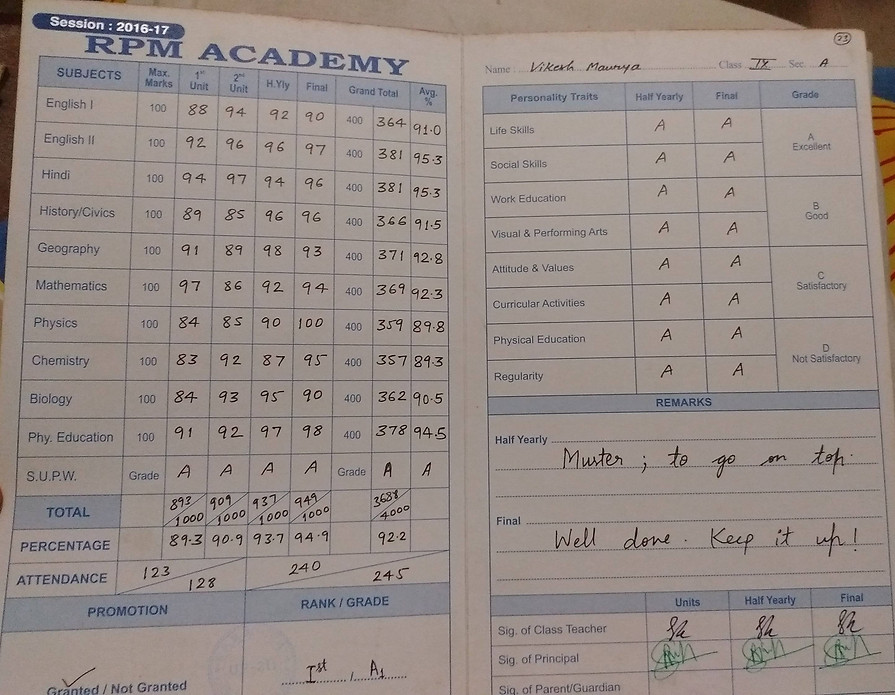 Session : 2016-17
RPM ACADEMY
SUBJECTS Max. Marks 1st Unit 2nd Unit H.Yly Final Grand Total Avg. %
English I 100 88 94 92 90 400 364 91.0
English II 100 92 96 96 97 400 381 95.3
Hindi 100 94 97 94 96 400 381 95.3
History/Civics 100 89 85 96 96 400 366 91.5
Geography 100 91 89 98 93 400 371 92.8
Mathematics 100 97 86 92 94 400 369 92.3
Physics 100 84 85 90 100 400 359 89.8
Chemistry 100 83 92 87 95 400 357 89.3
Biology 100 84 93 95 90 400 362 90.5
Phy. Education 100 91 92 97 98 400 378 94.5
S.U.P.W. Grade A A A A Grade A A
TOTAL 893/1000 909/1000 937/1000 949/1000 3688/4000
PERCENTAGE 89.3 90.9 93.7 94.9 92.2
ATTENDANCE 123/128 240/245
PROMOTION RANK / GRADE
Granted / Not Granted Ist / A1
23
Name : Vikesh Maurya Class IX Sec. A
Personality Traits Half Yearly Final Grade
Life Skills A A
A
Excellent
Social Skills A A
Work Education A A
B
Good
Visual & Performing Arts A A
Attitude & Values A A
C
Satisfactory
Curricular Activities A A
Physical Education A A
D
Not Satisfactory
Regularity A A
REMARKS
Half Yearly
Muster ; to go on top.
Final
Well done. Keep it up!
Units Half Yearly Final
Sig. of Class Teacher
Sig. of Principal
Sig. of Parent/Guardian